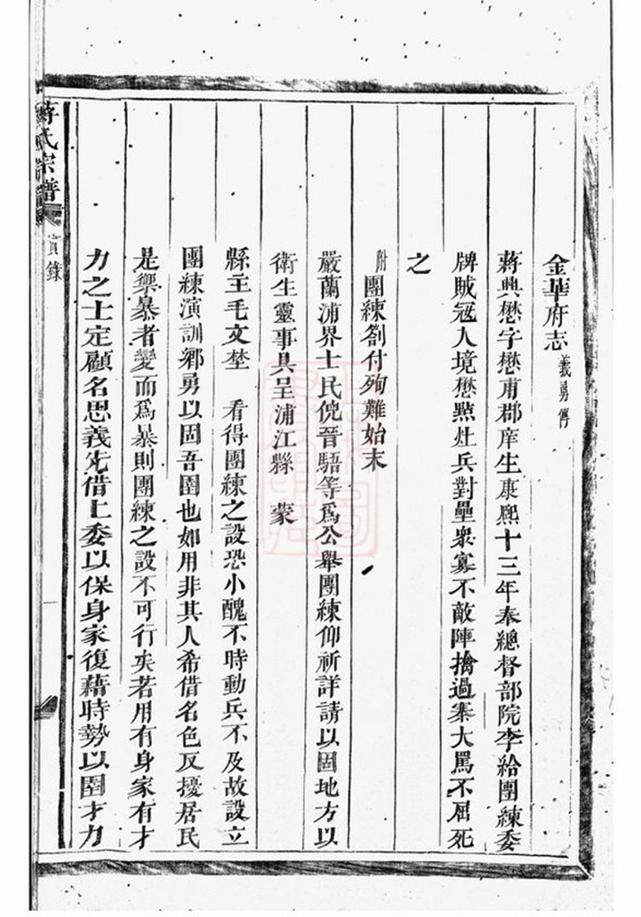 金華府志 義勇傳
蔣興懋字懋甫郡庠生康熙十三年奉總督部院李給團練委
牌賊冦入境懋㸃灶兵對壘衆寡不敵陣擒過寨大罵不屈死
之
附 團練劄付殉難始末
嚴蘭浦界士民倪晉語等爲公舉團練仰祈詳請以固地方以
衛生靈事具呈浦江縣 蒙
縣主毛文埜 看得團練之設恐小醜不時動兵不及故設立
團練演訓鄉勇以固吾圉也如用非其人希借名色反擾居民
是禦暴者變而爲暴則團練之設不可行矣若用有身家有才
力之士定顧名思義先借上委以保身家復藉時勢以圉才力
蔣氏宗譜 實錄